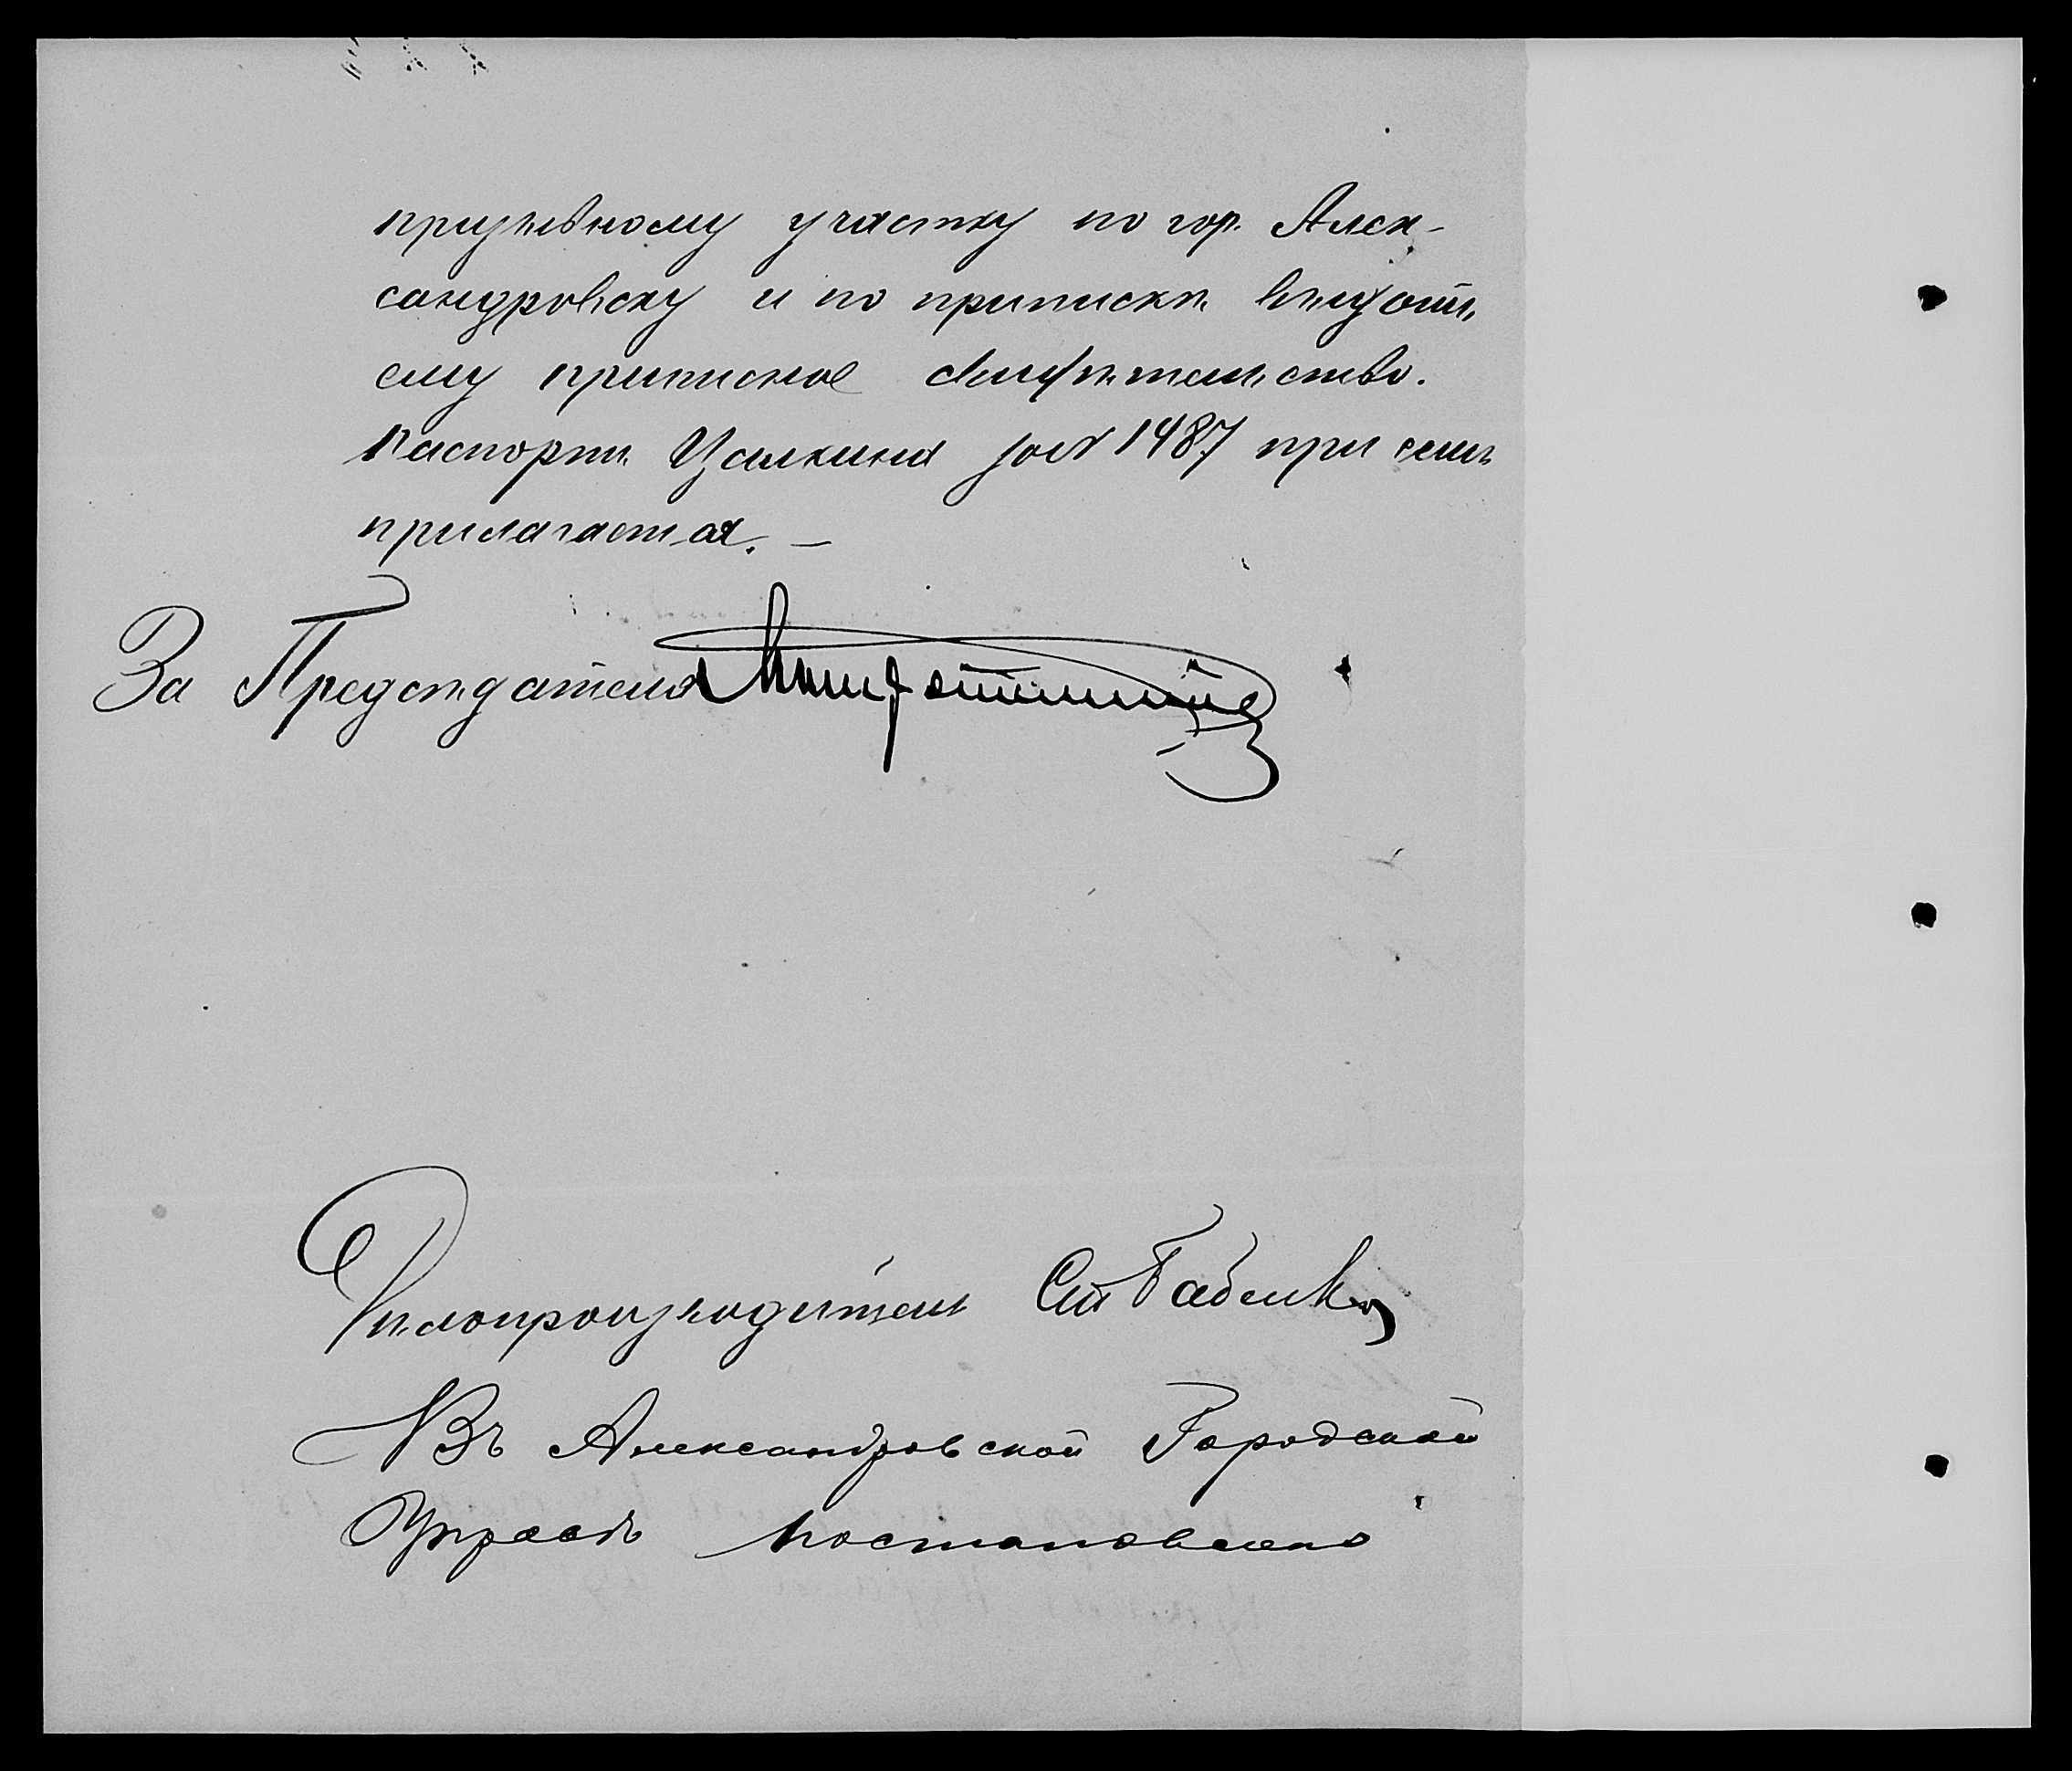 призывному участку по гор. Алек-
сандровску и по приписке выдать
ему приписное свидѣтельство.
Паспортъ Цалкина за № 1487 при семъ
прилагается. —
За Предсѣдателя
Дѣлопроизводитель Ст Бабенко
Въ Александровской Городской
Управѣ постановлено